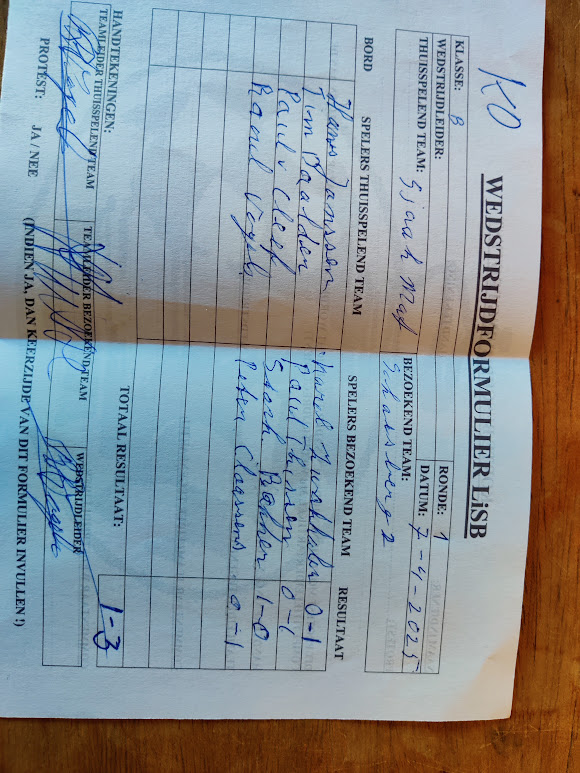 KO
WEDSTRIJDFORMULIER LiSB
KLASSE: B
RONDE: 1
WEDSTRIJDLEIDER:
DATUM: 7-4-2025
THUISSPELEND TEAM: Sjaak Mat
BEZOEKEND TEAM:
BORD SPELERS THUISSPELEND TEAM SPELERS BEZOEKEND TEAM RESULTAAT
Hans Janssen 0-1
Tim Paul 0-1
Paul v Cleef 1-0
Raoul Peter Claassens 0-1
TOTAAL RESULTAAT: 1-3
HANDTEKENINGEN:
TEAMLEIDER THUISSPELEND TEAM TEAMLEIDER BEZOEKEND TEAM WEDSTRIJDLEIDER
PROTEST: JA / NEE (INDIEN JA, DAN KEERZIJDE VAN DIT FORMULIER INVULLEN !)